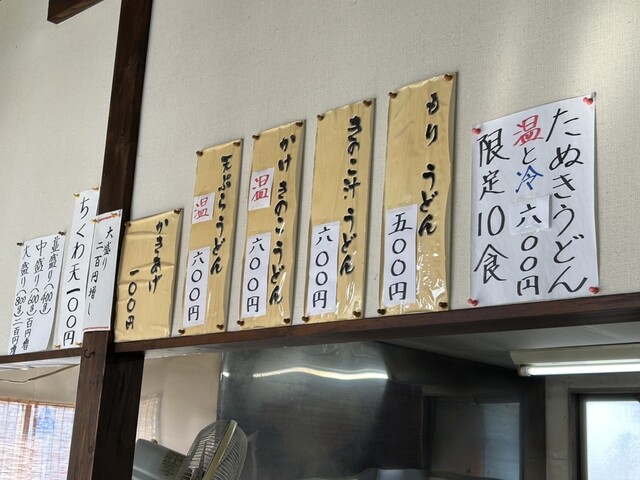 たぬきうどん
温と冷 六〇〇円
限定10食
もり うどん
五〇〇円
きのこ汁うどん
六〇〇円
かけきのこうどん
温
六〇〇円
天ぷらうどん
温
六〇〇円
かきあげ
一〇〇円
大盛り
二百円増し
ちくわ天一〇〇円
並盛り(400g)
中盛り(600g)百円増
大盛り(800g)二百円増